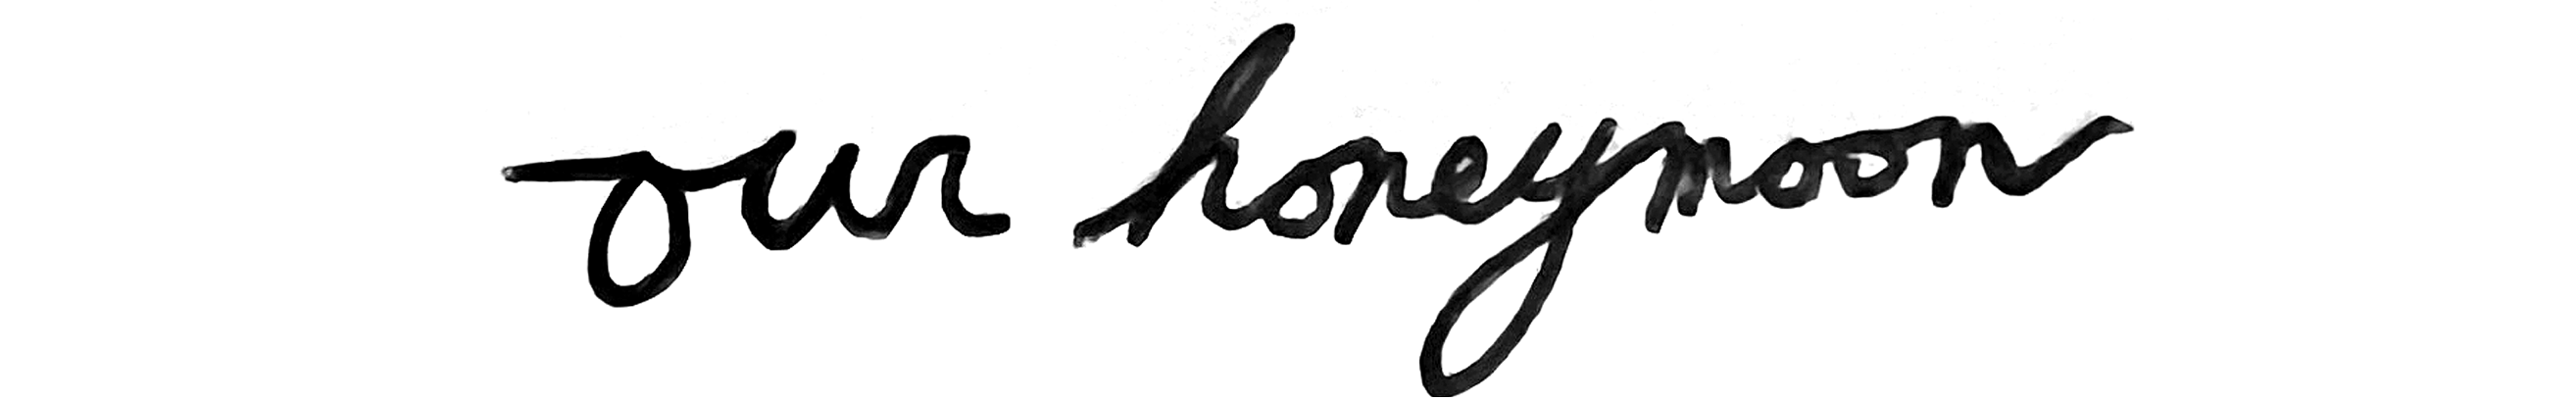 our honeymoon